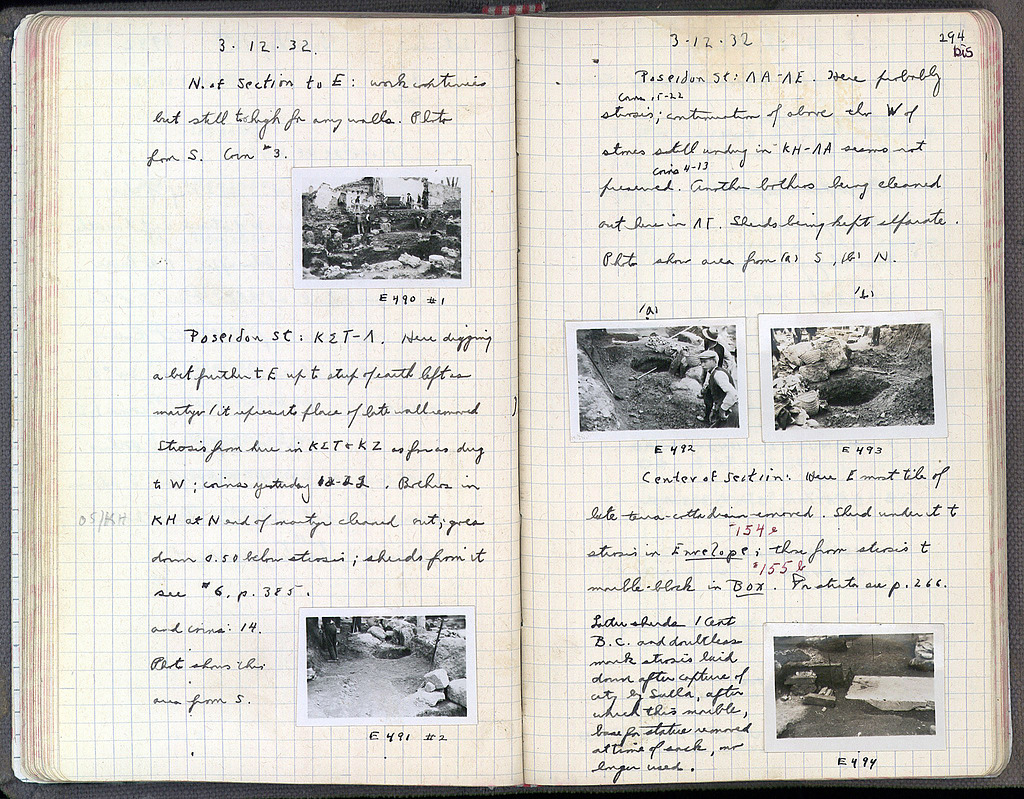 3·12·32.
N. of Section to E: work continues
but still too high for any walls. Photo
from S. Coin #3.
E 490 #1
Poseidon St: ΚΣΤ-Λ. Here digging
a bit further to E up to strip of earth left as
martyr (it represents place of late wall removed
Strosis from here in ΚΣΤ + ΚΖ as far as dug
to W; coins yesterday. Bothros in
ΚΗ at N end of martyr cleaned out; goes
down 0.50 below strosis; sherds from it
see #6, p. 385.
and coins: 14.
Photo shows this
area from S.
E 491 #2
3·12·32
294
bis
Poseidon St: ΛΑ-ΛΕ. Here probably
Coins 15-22
strosis; continuation of above tho W of
stones still under in ΚΗ-ΛΑ seems not
Coins 4-13
preserved. Another bothros being cleaned
out here in ΛΓ. Sherds being kept separate.
Photo show area from (a) S, (b) N.
(a)
(b)
E 492
E 493
Center of Section: Here E most tile of
late terra-cotta drain removed. Sherd under it to
#154 a
strosis in Envelope; those from strosis to
#155 b
marble-block in Box. For strata see p. 266.
Latter sherds 1 Cent
B.C. and doubtless
mark strosis laid
down after capture of
city by Sulla, after
which this marble,
base for statue removed
at time of sack, no
longer used.
E 494